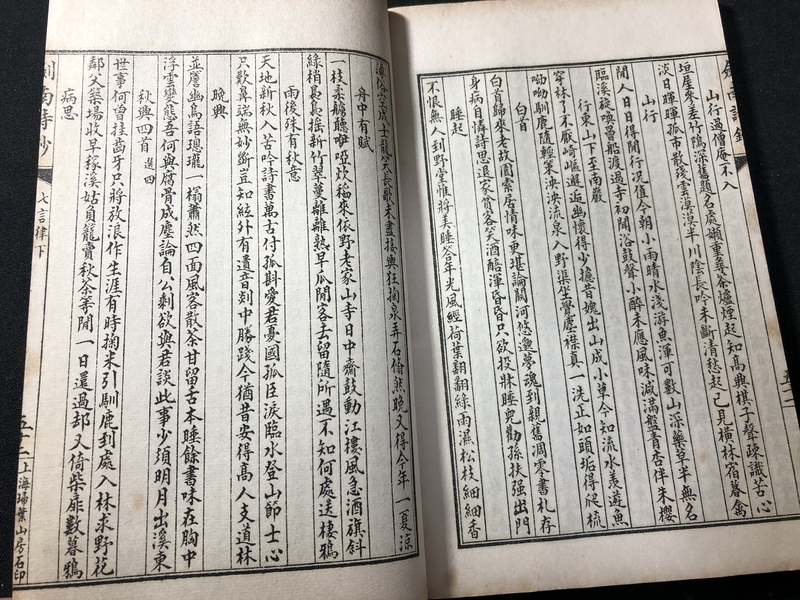 劍南詩鈔
山行過僧庵不入
垣屋參差竹隖深舊題名處懶重尋茶爐煙起知高興棋子聲疎識苦心
淡日暉暉孤市散殘雲漠漠半川陰長吟未斷清愁起已見橫林宿暮禽
山行
閒人日日得閒行況值今朝小雨晴水淺游魚渾可數山深藥草半無名
臨溪旋喚罾船渡過寺初聞浴鼓聲小醉未應風味減滿盤青杏伴朱櫻
行東山下至南巖
穿林了不厭崎嶇邂逅幽懷得少攄昔媿出山成小草今如流水羨遊魚
呦呦馴鹿隨輕策泱泱流泉入野渠坐覺塵襟真一洗正如頭垢得爬梳
白首
白首歸來老故園索居情味更堪論關河悠邈夢魂到親舊凋零書札存
身病自憐詩思退家貧客笑酒醅渾昏昏只欲投牀睡兒勸孫扶强出門
睡起
不恨無人到野堂惟將美睡答年光風經荷葉翻翻綠雨濕松枝細細香
薄俗空成士龍笑長歌未盡接輿狂掬泉弄石翛然晚又得今年一夏涼
舟中有賦
一枝柔艣聽咿啞炊稻來依野老家山寺日中齋鼓動江樓風急酒旗斜
綠梢裊裊搖新竹翠蔓離離熟早瓜閒客去留隨所遇不知何處送棲鴉
雨後殊有秋意
天地新秋入苦吟詩書萬古付孤斟愛君憂國孤臣淚臨水登山節士心
只歎鼻端無妙斲豈知絃外有遺音剡中勝踐今猶昔安得高人支道林
晚興
並簷幽鳥語璁瓏一榻蕭然四面風客散茶甘留舌本睡餘書味在胸中
浮雲變態吾何與腐骨成塵論自公剩欲與君談此事少須明月出溪東
秋興四首 選四
世事何曾挂齒牙只將放浪作生涯有時掬米引馴鹿到處入林求野花
鄰父築場收早稼溪姑負籠賣秋茶等閒一日還過却又倚柴扉數暮鴉
病思
劍南詩鈔 七言律下 五十二 上海埽葉山房石印